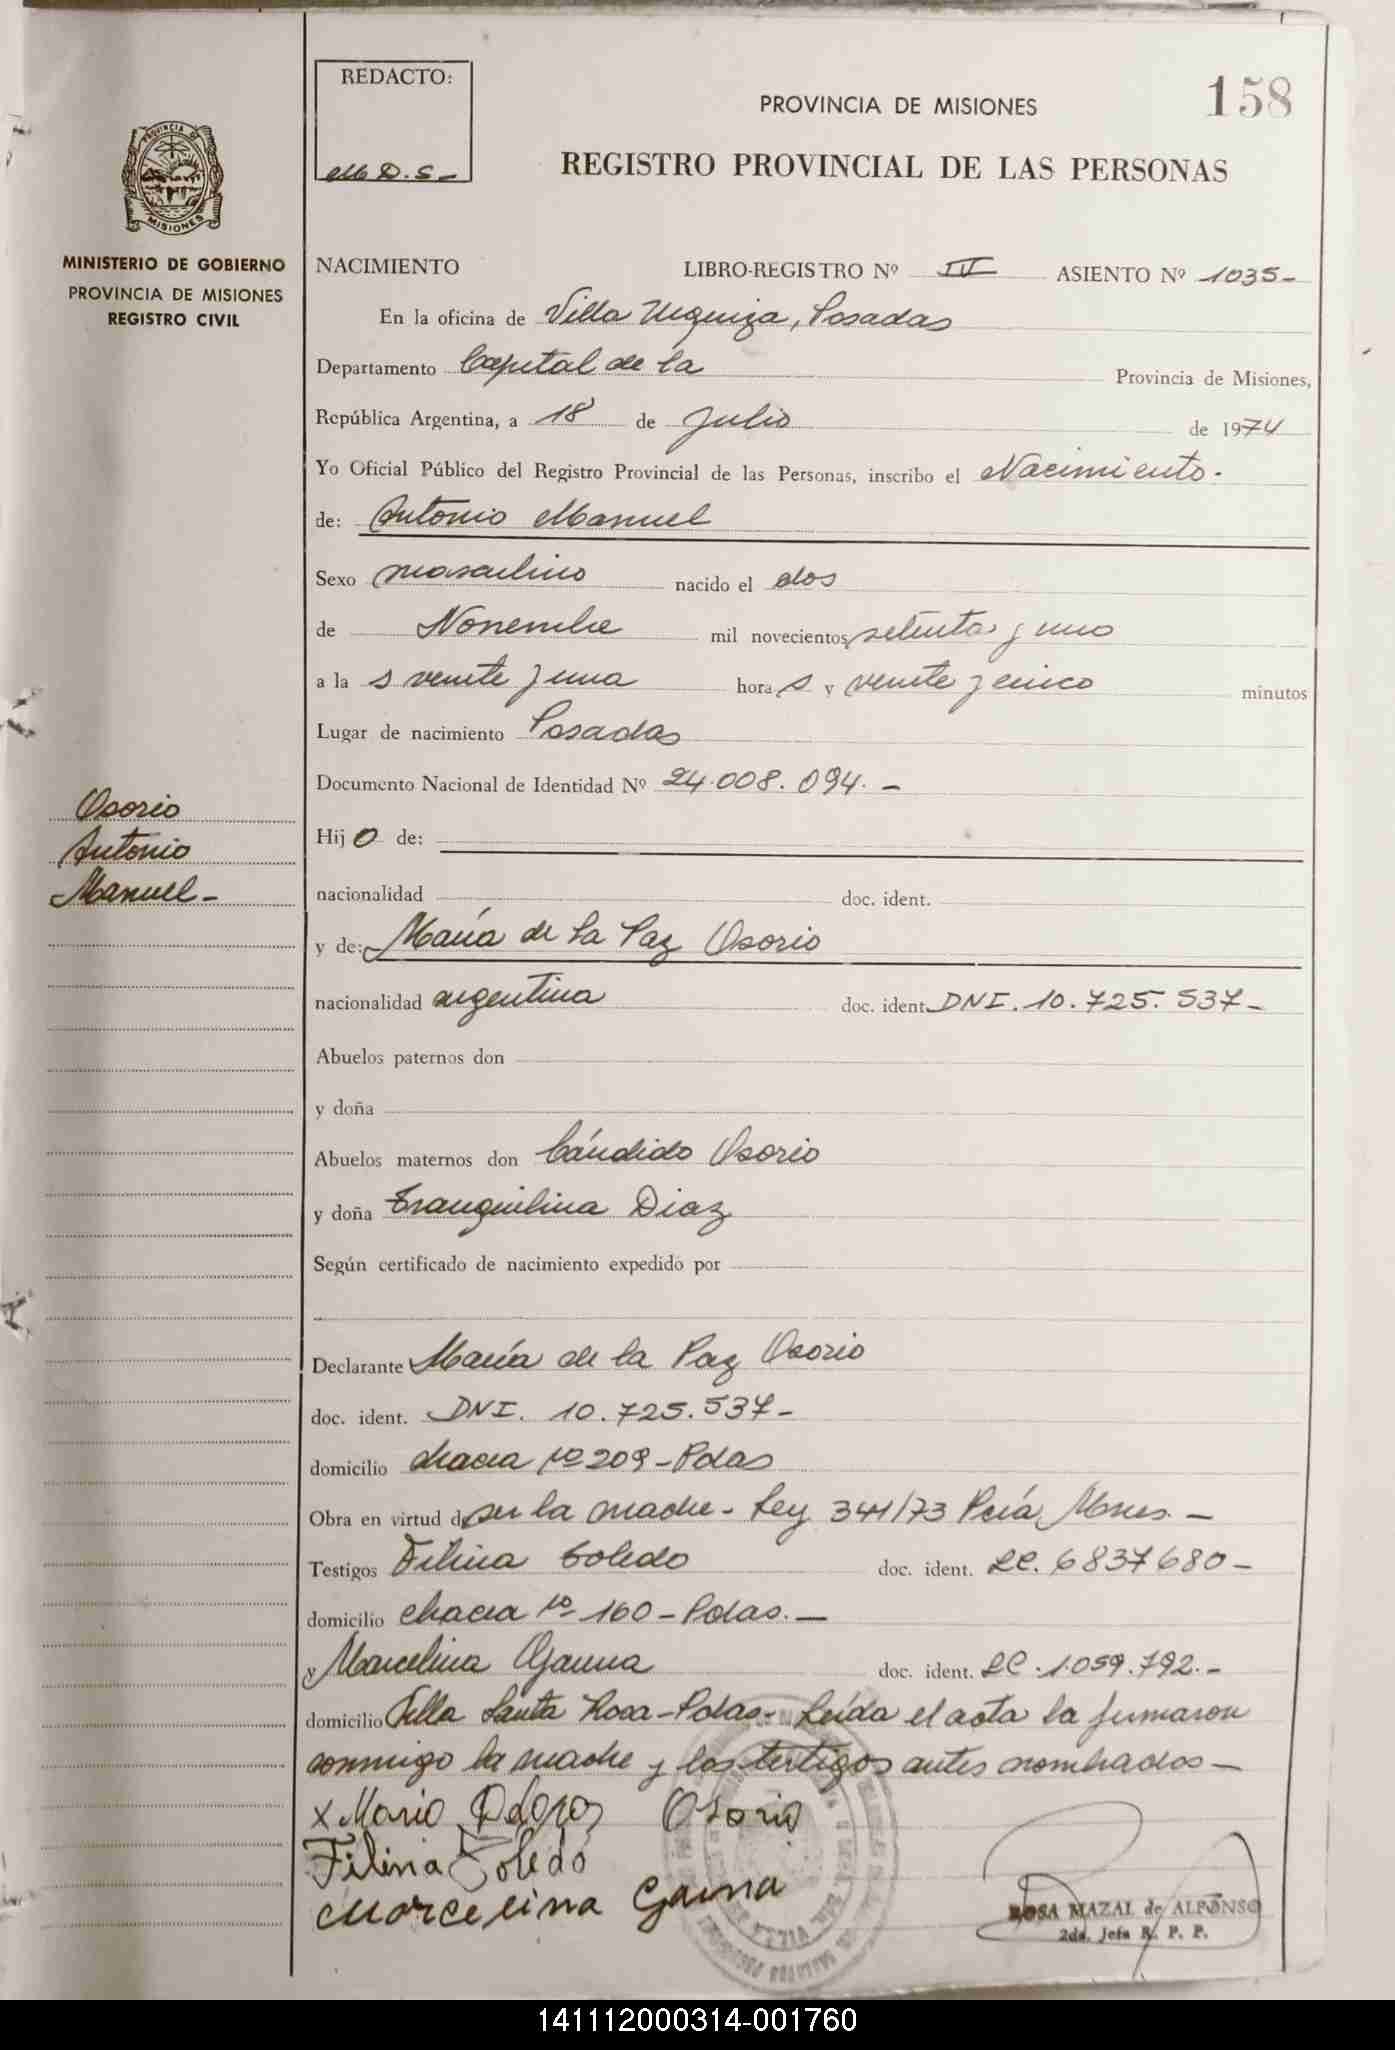 REDACTO:
M D. S-
PROVINCIA DE MISIONES
158
REGISTRO PROVINCIAL DE LAS PERSONAS
PROVINCIA DE
MISIONES
MINISTERIO DE GOBIERNO
PROVINCIA DE MISIONES
REGISTRO CIVIL
NACIMIENTO LIBRO-REGISTRO Nº IV ASIENTO Nº 1035-
En la oficina de Villa Urquiza, Posadas
Departamento Capital de la Provincia de Misiones,
República Argentina, a 18 de Julio de 1974
Yo Oficial Público del Registro Provincial de las Personas, inscribo el Nacimiento.
de: Antonio Manuel
Sexo masculino nacido el dos
de Noviembre mil novecientos setenta y uno
a la s veinte y una hora s y veinte y cinco minutos
Lugar de nacimiento Posadas
Documento Nacional de Identidad Nº 24.008.094. -
Osorio
Antonio
Manuel-
Hij o de:
nacionalidad doc. ident.
y de: María de la Paz Osorio
nacionalidad argentina doc. ident. DNI. 10.725.537-
Abuelos paternos don
y doña
Abuelos maternos don Cándido Osorio
y doña Tranquilina Diaz
Según certificado de nacimiento expedido por
Declarante María de la Paz Osorio
doc. ident. DNI. 10.725.537-
domicilio chacra Nº 209-Pdas
Obra en virtud de ser la madre- Ley 341/73 Pcia Mnes. -
Testigos Filina Toledo doc. ident. LC. 6837680-
domicilio chacra Nº 160-Pdas. -
y Marcelina Gauna doc. ident. LC. 1.059.792.-
domicilio Villa Santa Rosa-Pdas- Leída el acta la firmaron
conmigo la madre y los testigos antes nombrados-
x Mario Osorio
Filina Toledo
Marcelina Gauna
ROSA MAZAL de ALFONSO
2da. Jefa R. P. P.
141112000314-001760